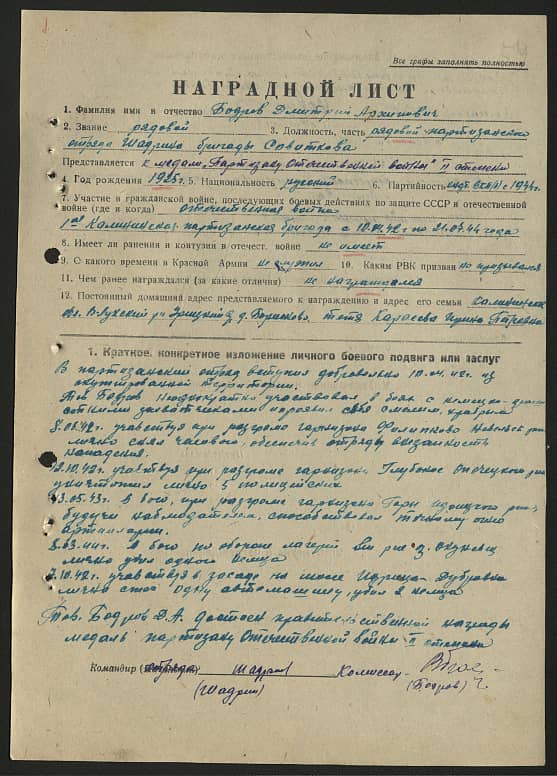 Все графы заполнять полностью
НАГРАДНОЙ ЛИСТ
1. Фамилия имя и отчество Бодров Дмитрий Архипович
2. Звание рядовой 3. Должность, часть рядовой-партизанского
отряда Шадрина бригады
Представляется к медали „Партизану Отечественной войны" II степени
4. Год рождения 1925г. 5. Национальность русский 6. Партийность с 1944г.
7. Участие в гражданской войне, последующих боевых действиях по защите СССР и отечественной
войне (где и когда) отечественная война
1ая Калининская партизанская бригада с 10.04.42г. по 21.07.44 года
8. Имеет ли ранения и контузии в отечест. войне не имеет
9. С какого времени в Красной Армии не служил 10. Каким РВК призван не призывался
11. Чем ранее награждался (за какие отличия) не награждался
12. Постоянный домашний адрес представляемого к награждению и адрес его семьи Калининская
обл. В-Лукский р-н д. Борисково. тетя Карасева Ирина
1. Краткое, конкретное изложение личного боевого подвига или заслуг
В партизанский отряд вступил добровольно 10.04.42г. из
оккупированной территории.
Тов Бодров неоднократно участвовал в боях с немецко-
захватчиками проявил себя смелым, храбрым
участвуя при разгроме гарнизона Филипково
лично снял часового, обеспечив отряду внезапность
нападения.
12.10.42г. участвуя при разгроме гарнизона Глубокое Опочецкого р-на
уничтожил лично 3 полицейских
3.05.43г. в бою, при разгроме гарнизона
будучи наблюдателем, способствовал точному огню
артиллерии.
8.03.44г. в бою по обороне лагеря
лично убил одного немца
7.10.42г. участвуя в засаде на шоссе Идрица-Дубровка
лично сжег одну автомашину, убил 2 немца
Тов. Бодров Д.А. достоен правительственной награды
медаль „партизану Отечественной войны" II степени
Командир отряда Шадрин Комиссар
(Шадрин) (Бодров)